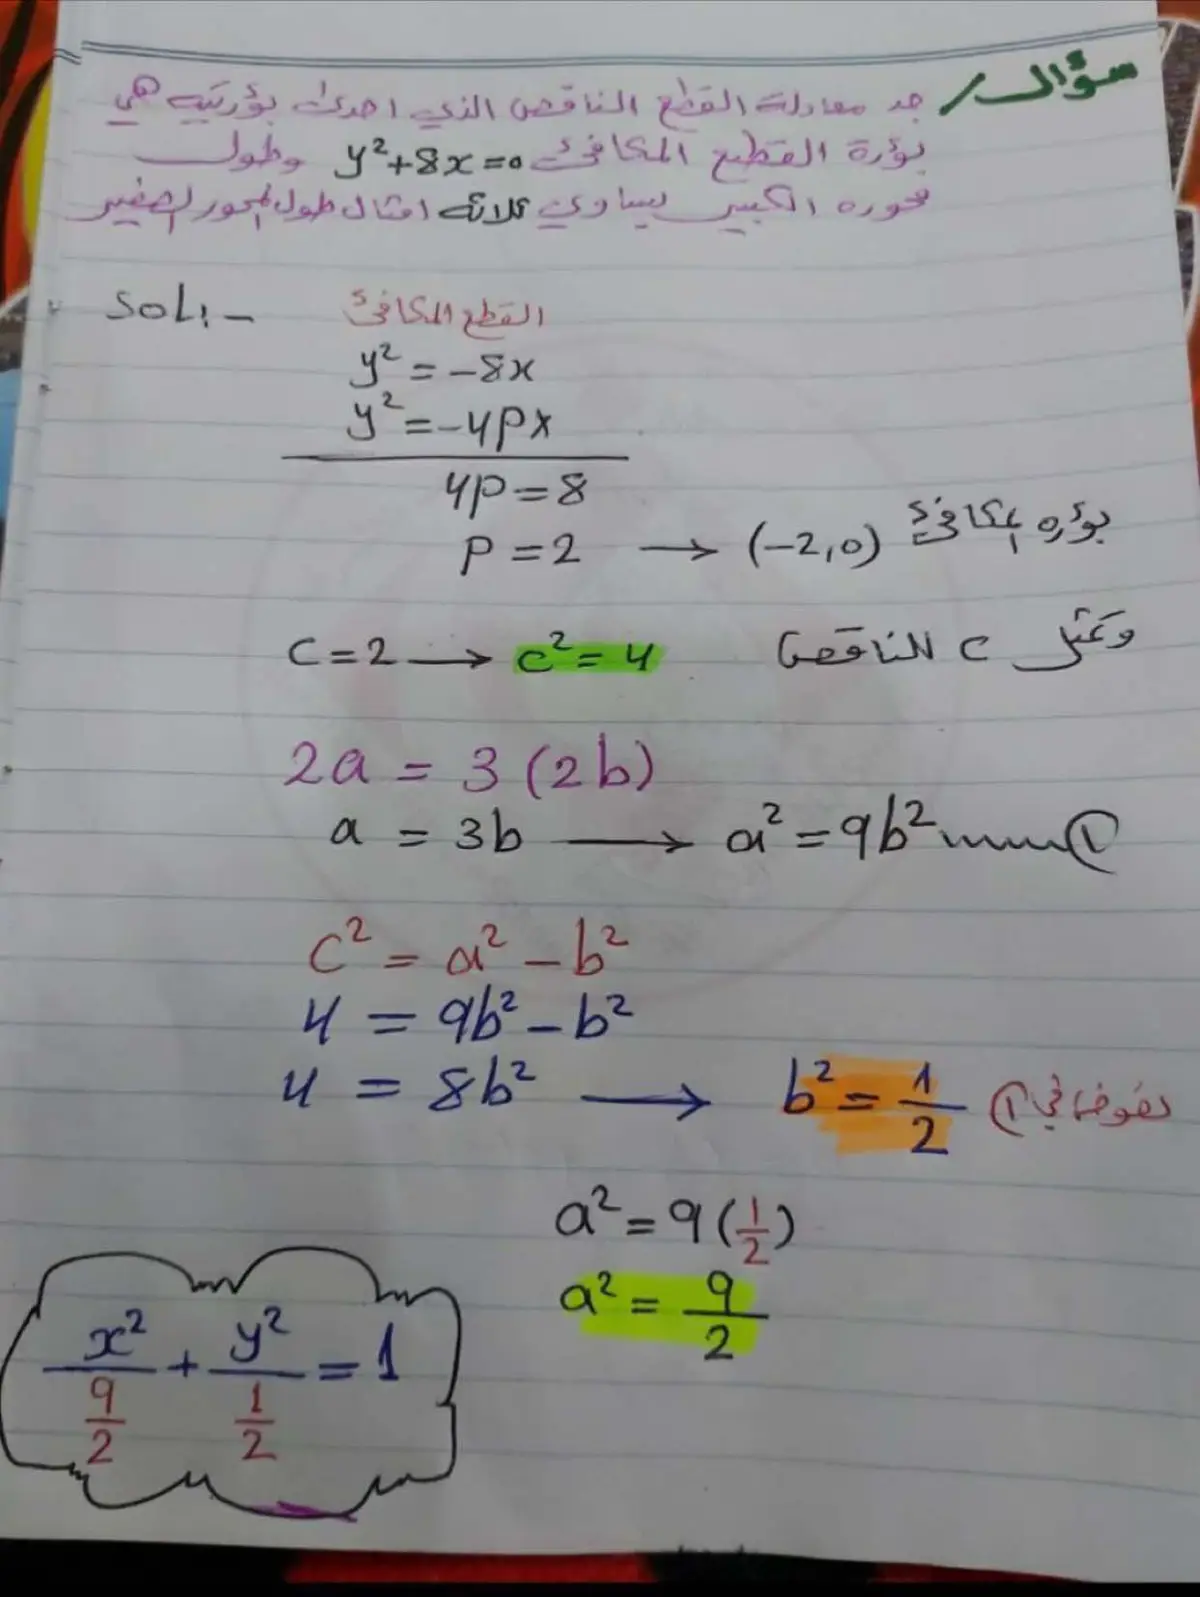 سؤال/ جد معادلة القطع الناقص الذي احدى بؤرتيه هي
بؤرة القطع المكافئ y²+8x=0 وطول
محوره الكبير يساوي ثلاثة امثال طول المحور الصغير
Sol:-
القطع المكافئ
y² = -8x
y² = -4px
4p = 8
p = 2 → (-2,0) بؤره المكافئ
c = 2 → c² = 4 وتمثل c للناقص
2a = 3 (2b)
a = 3b → a² = 9b² ①
c² = a² - b²
4 = 9b² - b²
4 = 8b² → b² = 1/2 نعوضها في ①
a² = 9(1/2)
a² = 9/2
x²/(9/2) + y²/(1/2) = 1